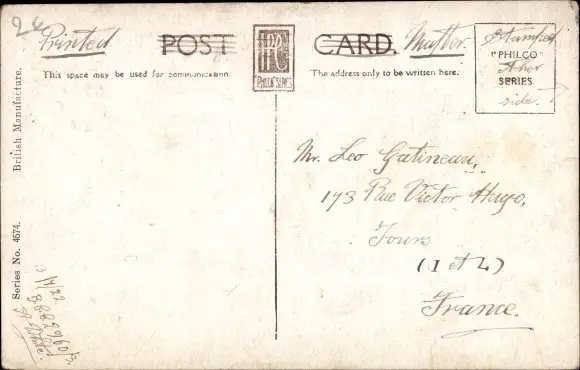 24
Printed POST CARD. Matter.
This space may be used for communication
The address only to be written here.
PHILCO SERIES
Stamped
"PHILCO
other
SERIES.
side.
Mr. Leo Gatineau,
173 Rue Victor Hugo,
Tours
(I et L)
France.
British Manufacture.
Series No. 4674.
13/4/22
White.